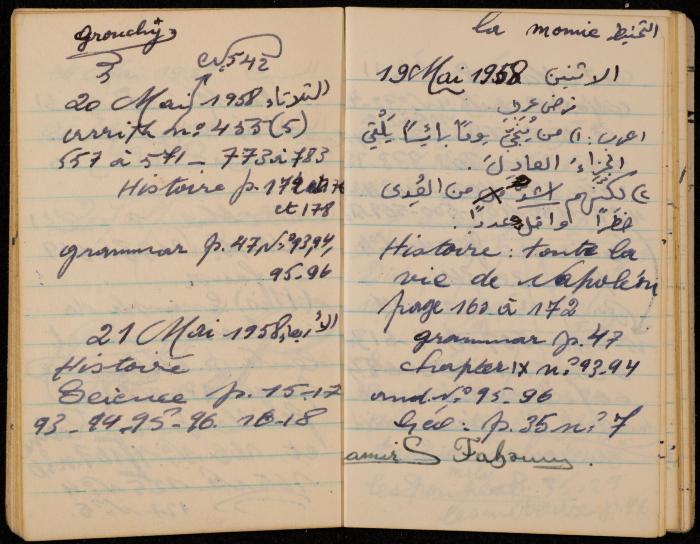 grouchy
542
20 Mai 1958 الثلاثاء
arrith nº 455 (5)
557 à 571 - 773 à 783
Histoire p. 172 à 176
et 178
grammar p. 47, Nº 93, 94,
95-96
21 Mai 1958 الأربعاء
Histoire
Science p. 15-17
93-94-95-96. 16-18
la momie التحنيط
19 Mai 1958 الاثنين
فرض عربي
اعرب: ١) من يُنَجِّ يومًا بائسًا يَلْقَ
الجزاءَ العادلَ.
٢) من العِدى
خطرًا وأقل عددًا.
Histoire : toute la
vie de Napoléon
page 160 à 172
grammar p. 47
chapter IX nº 93-94
and. Nº 95-96
Géo : p. 35 nº 7
amir S Fahoum